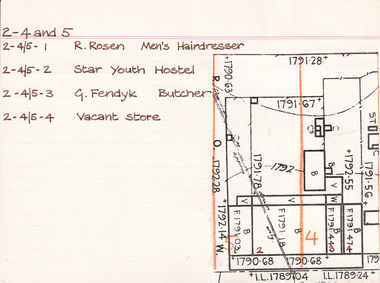 2-4 and 5
2-4/5-1 R. Rosen Men's Hairdresser
2-4/5-2 Star Youth Hostel
2-4/5-3 G. Fendyk Butcher
2-4/5-4 Vacant store
1791·28
1790·63
R.
1791·67
ST
O
1792
B
1791·78
1792·55
1791·56
1792·28
V
V
W
1792·14
W.
B
B
B
F1791·18
F1791·44
F1791·474
2
4
3
4
1790·68
1790·68
I.L.1789·04
I.L.1789·24